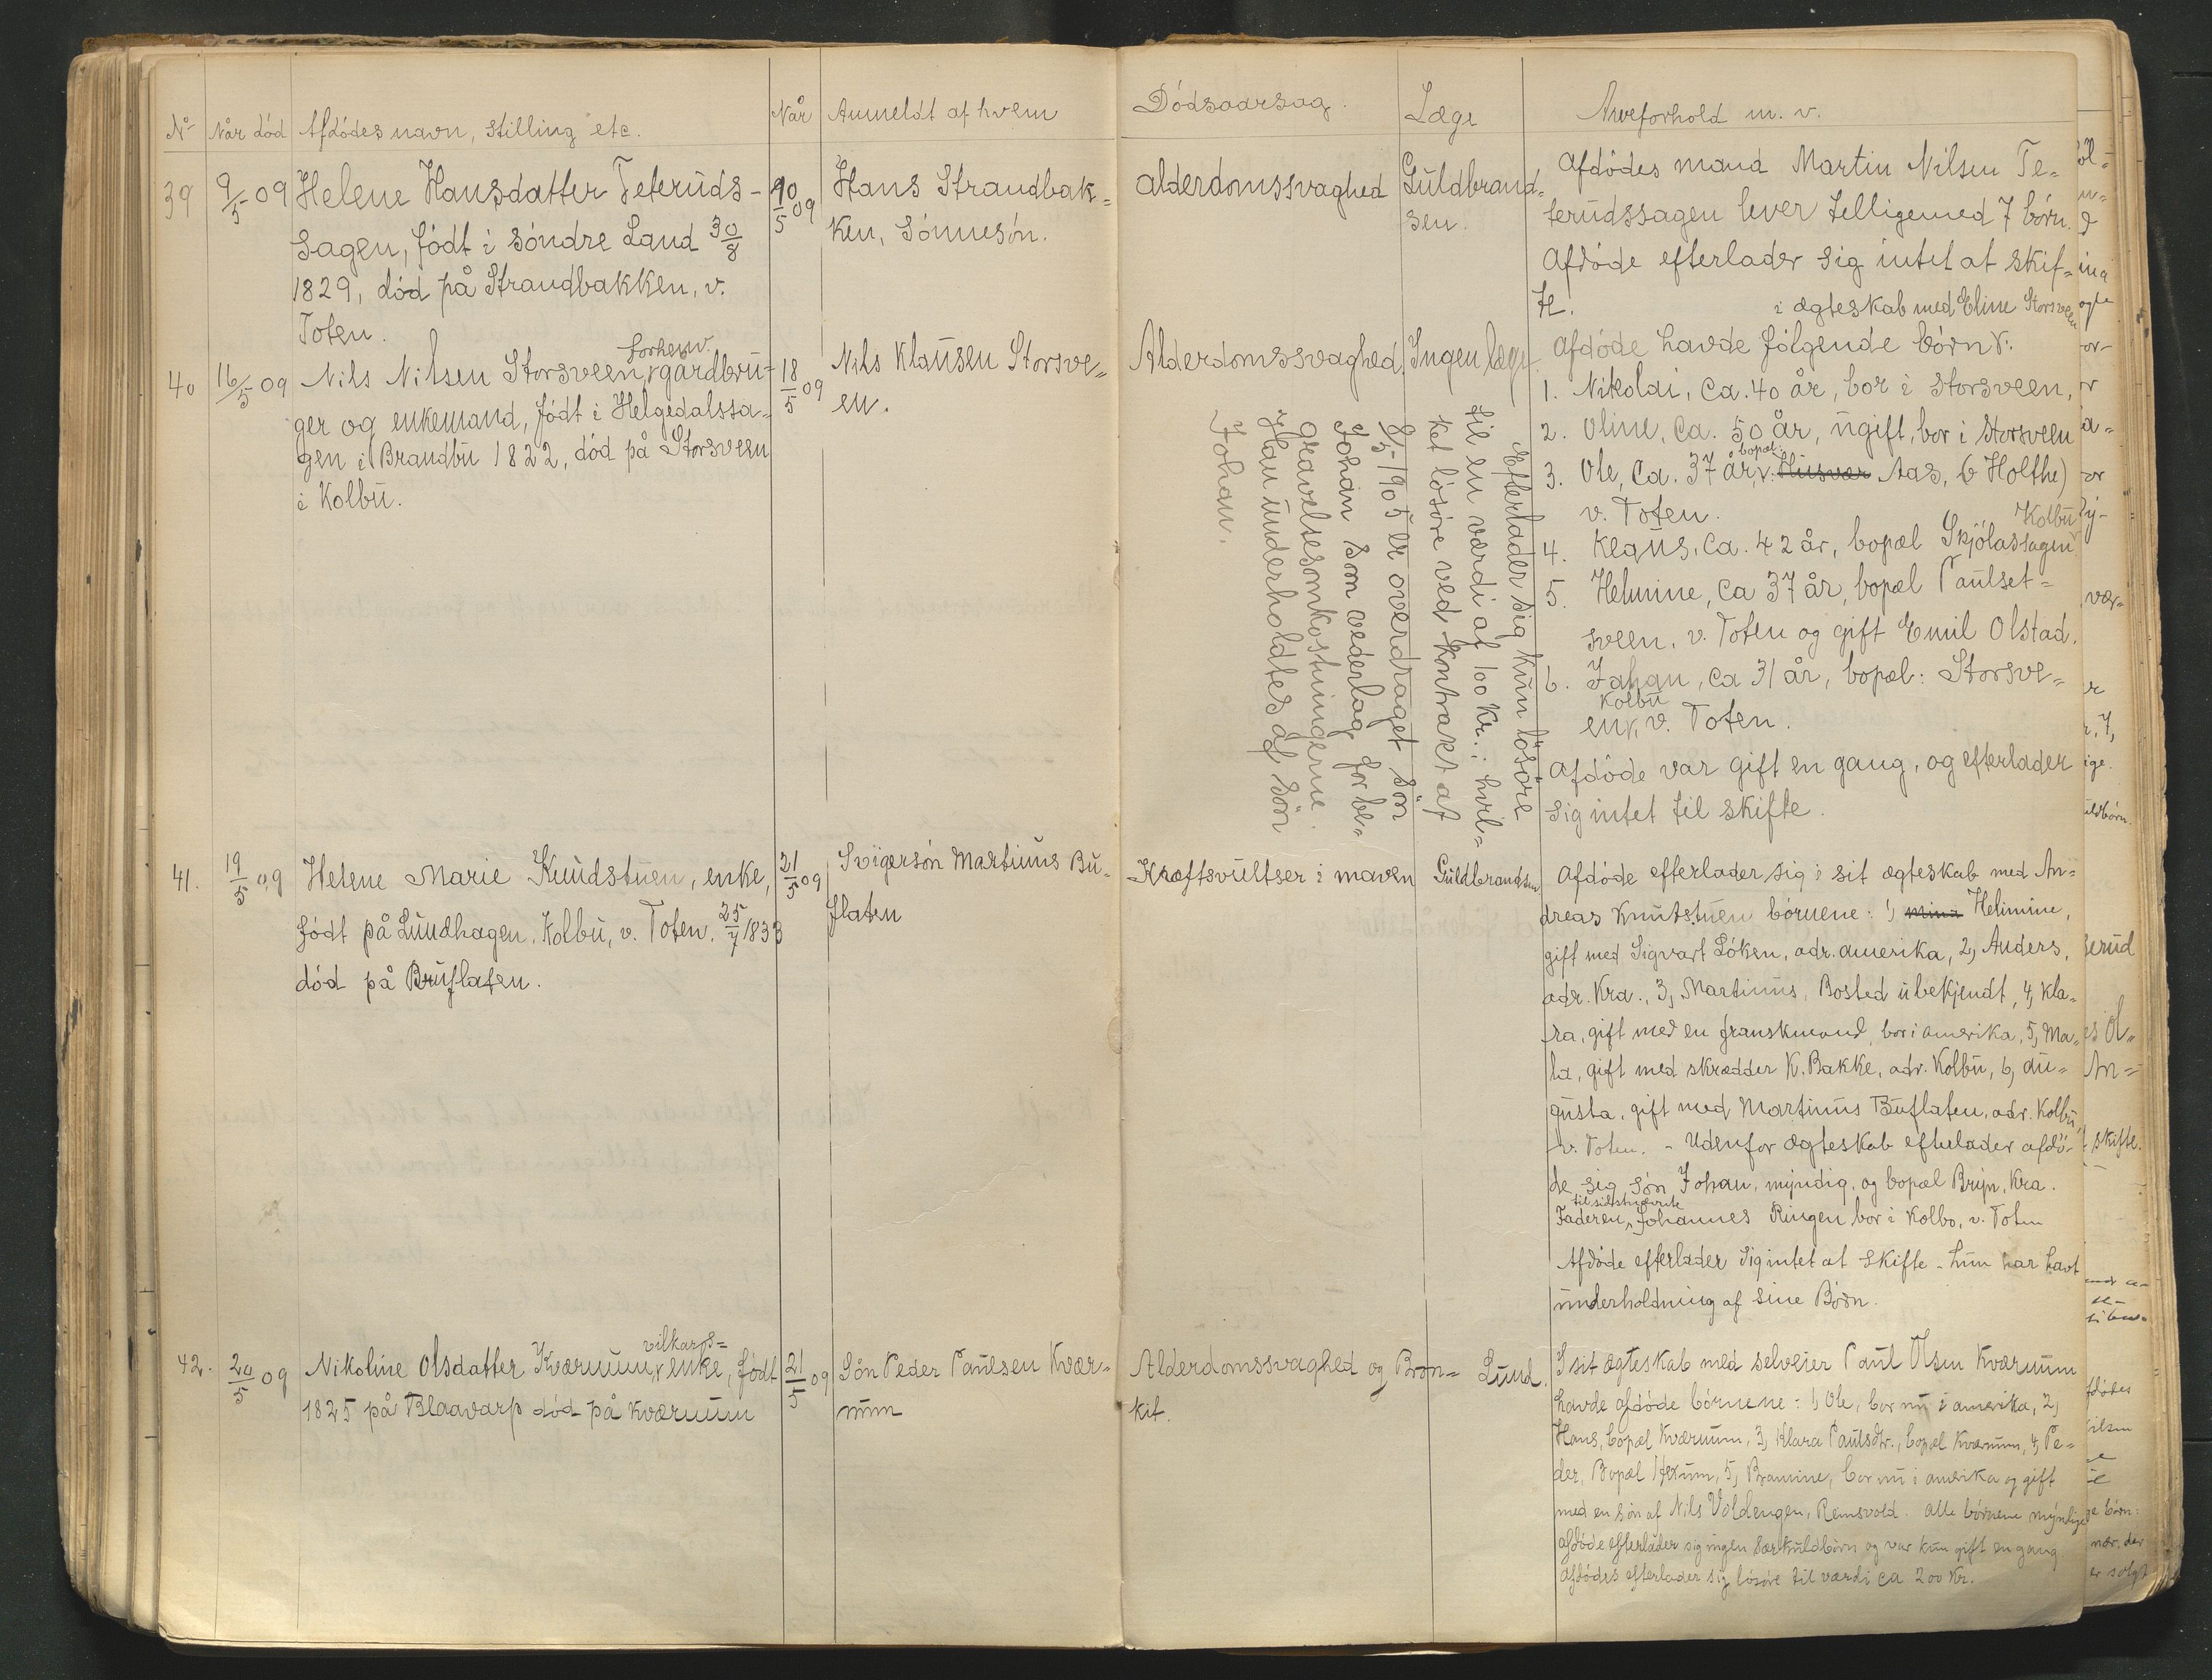 No Når död Afdödes navn, stilling etc. Når Anmeldt af hvem Dödsaarsag. Læge Arveforhold m. v.
39 9/5 09 Helene Hansdatter Teteruds-
sagen, födt i söndre Land 30/8
1829, död på Strandbakken, v.
Toten.
10/5 09
Hans Strandbak-
ken, Sönnesön.
Alderdomssvaghed
Guldbrand-
sen.
Afdödes mand Martin Nilsen Te-
terudssagen lever telligemed 7 börn.
Afdöde efterlader sig intet at skif-
te.
40 16/5 09 Nils Nilsen Storsveen, forhenv. gårdbru-
ger og enkemand, födt i Helgedalssa-
gen i Brandbu 1822, död på Storsveen
i Kolbu.
18/5 09
Nils Klausen Storsve-
en.
Alderdomssvaghed. Ingen læge
Efterlader sig kun lösöre
til en værdi af 100 kr.: hvil-
ket lösöre ved kontrakt af
8/5 1905 er overdraget sön
Johan som vederlag for be-
gravelsesomkostningerne.
Han underholdtes af sön
Johan.
i ægteskab med Eline Storsveen
Afdöde havde fölgende börn:
1. Nikolai, ca. 40 år, bor i Storsveen,
2. Oline, ca. 50 år, ugift, bor i Storsveen
3. Ole, ca. 37 år, bopæl: Husvær Aas, (Holthe)
v. Toten.
4. Klaus, ca. 42 år, bopæl Skjölassagen Kolbu
5. Helmine, ca 37 år, bopæl Paulset-
sveen, v. Toten og gift Emil Olstad.
6. Johan, ca 31 år, bopæl: Storsve-
en, Kolbu v. Toten.
Afdöde var gift en gang, og efterlader
sig intet til skifte.
41. 19/5 09 Helene Marie Knudstuen, enke,
födt på Lundhagen, Kolbu, v. Toten. 25/7 1833
död på Bruflaten.
21/5 09
Svigersön Martinus Bu-
flaten
Kræftsvultser i maven
Guldbrandsen
Afdöde efterlader sig i sit ægteskab med An-
dreas Knutstuen börnene: 1, Mina Helimine,
gift med Sigvart Löken, adr. Amerika, 2, Anders,
adr. Kra., 3, Martinus, Bosted ubekjendt, 4, Kla-
ra, gift med en franskmand, bor i Amerika, 5, Ma-
la, gift med skrædder K. Bakke, adr. Kolbu, 6, Au-
gusta, gift med Martinus Buflaten, adr. Kolbu,
v. Toten. - Udenfor ægteskab efterlader afdö-
de sig sön Johan, myndig, og bopæl Bryn, Kra.
Faderen, Johannes Ringen bor i Kolbo, v. Toten
Afdöde efterlader sig intet at skifte - hun har havt
underholdning af sine Börn.
42. 20/5 09 Nikoline Olsdatter Kværnum, vilkårs-enke, födt
1825 på Blaavarp död på Kværnum
21/5 09
Sön Peder Paulsen Kvær-
num
Alderdomssvaghed og Bron-
kit.
Lund.
I sit ægteskab med selveier Paul Olsen Kværnum
havde afdöde börnene: 1, Ole, bor nu i Amerika, 2,
Hans, bopæl Kværnum, 3, Klara Paulsdtr., bopæl Kværnum, 4, Pe-
der, Bopæl Hexum, 5, Bramine, bor nu i Amerika og gift
med en sön af Nils Voldengen, Reinsvold. Alle börnene myndige
Afdöde efterlader sig ingen særkuldbörn og var kun gift en gang
Afdödes efterlader sig lösöre til værdi ca 200 Kr.